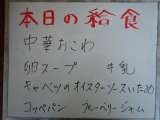 本日の給食
中華おこわ
卵スープ 牛乳
キャベツのオイスターソースいため
コッペパン ブルーベリージャム